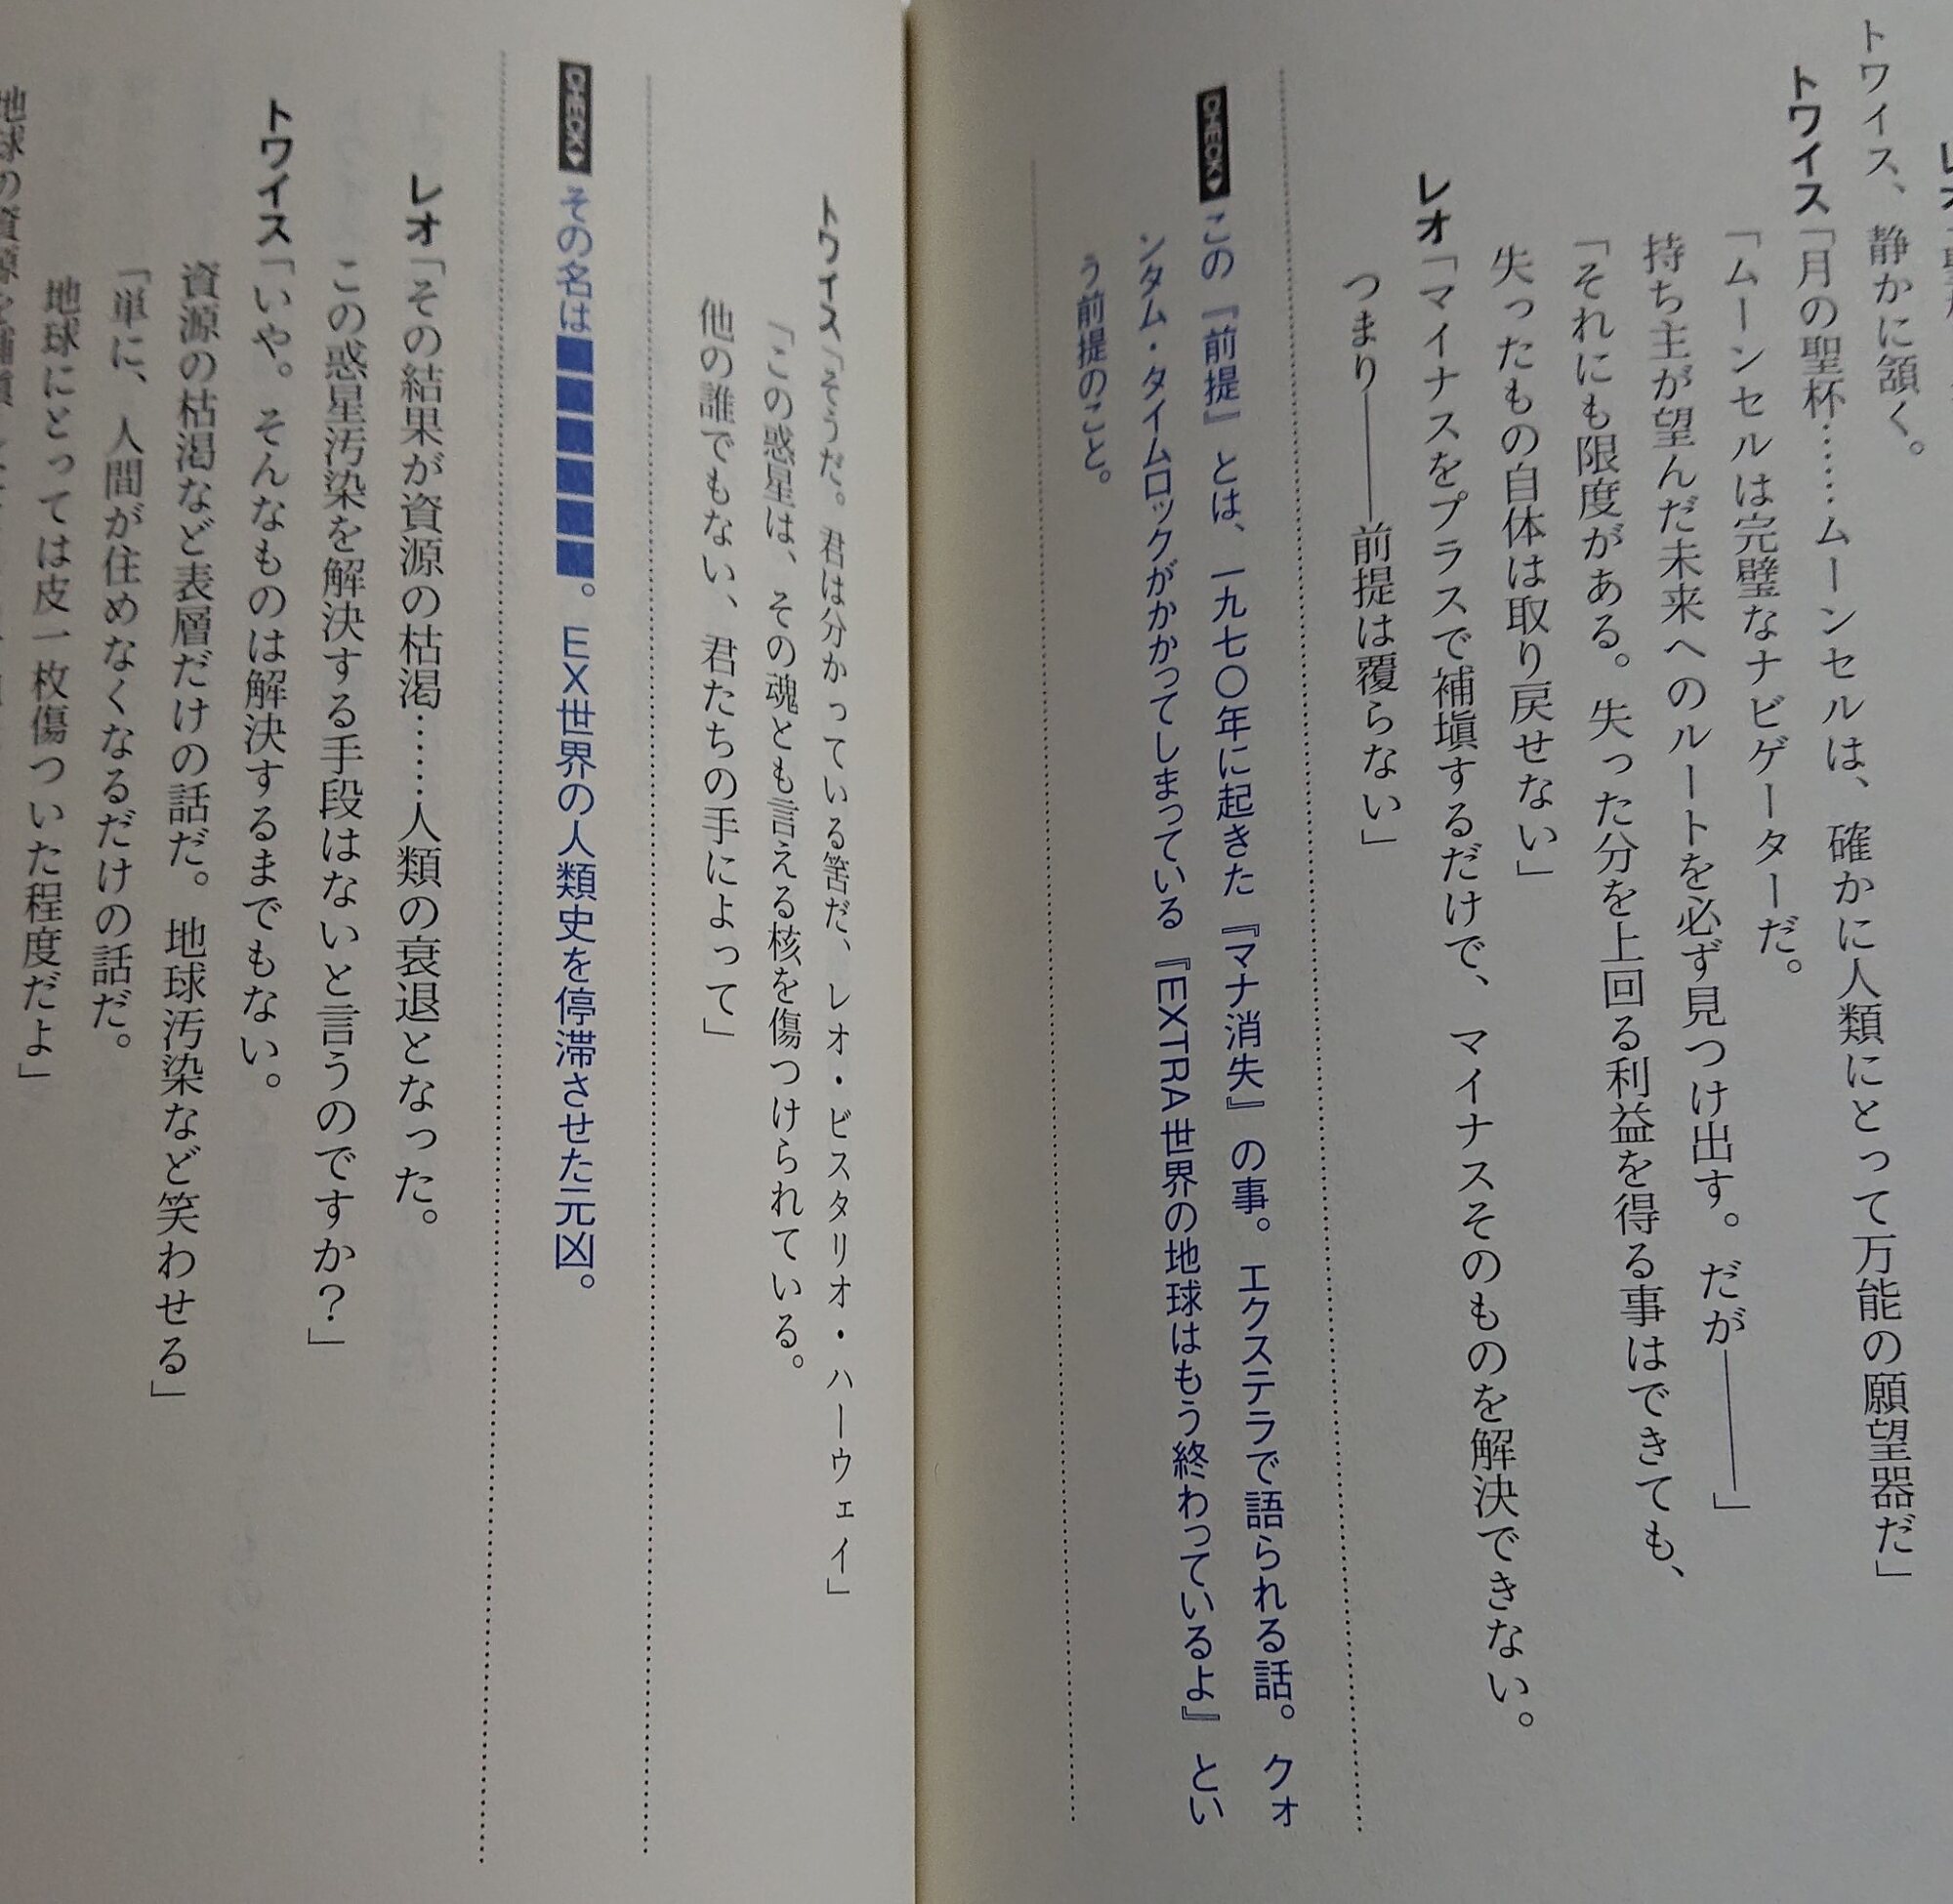 トワイス、静かに頷く。
トワイス「月の聖杯……ムーンセルは、確かに人類にとって万能の願望器だ」
「ムーンセルは完璧なナビゲーターだ。
持ち主が望んだ未来へのルートを必ず見つけ出す。だが――」
「それにも限度がある。失った分を上回る利益を得る事はできても、
失ったもの自体は取り戻せない」
レオ「マイナスをプラスで補塡するだけで、マイナスそのものを解決できない。
つまり――前提は覆らない」
CHECK この『前提』とは、一九七〇年に起きた『マナ消失』の事。エクステラで語られる話。クォ
ンタム・タイムロックがかかってしまっている『EXTRA世界の地球はもう終わっているよ』とい
う前提のこと。
トワイス「そうだ。君は分かっている筈だ、レオ・ビスタリオ・ハーウェイ」
「この惑星は、その魂とも言える核を傷つけられている。
他の誰でもない、君たちの手によって」
CHECK その名は■■■■■■。EX世界の人類史を停滞させた元凶。
レオ「その結果が資源の枯渇……人類の衰退となった。
この惑星汚染を解決する手段はないと言うのですか？」
トワイス「いや。そんなものは解決するまでもない。
資源の枯渇など表層だけの話だ。地球汚染など笑わせる」
「単に、人間が住めなくなるだけの話だ。
地球にとっては皮一枚傷ついた程度だよ」
地球の資源を補塡